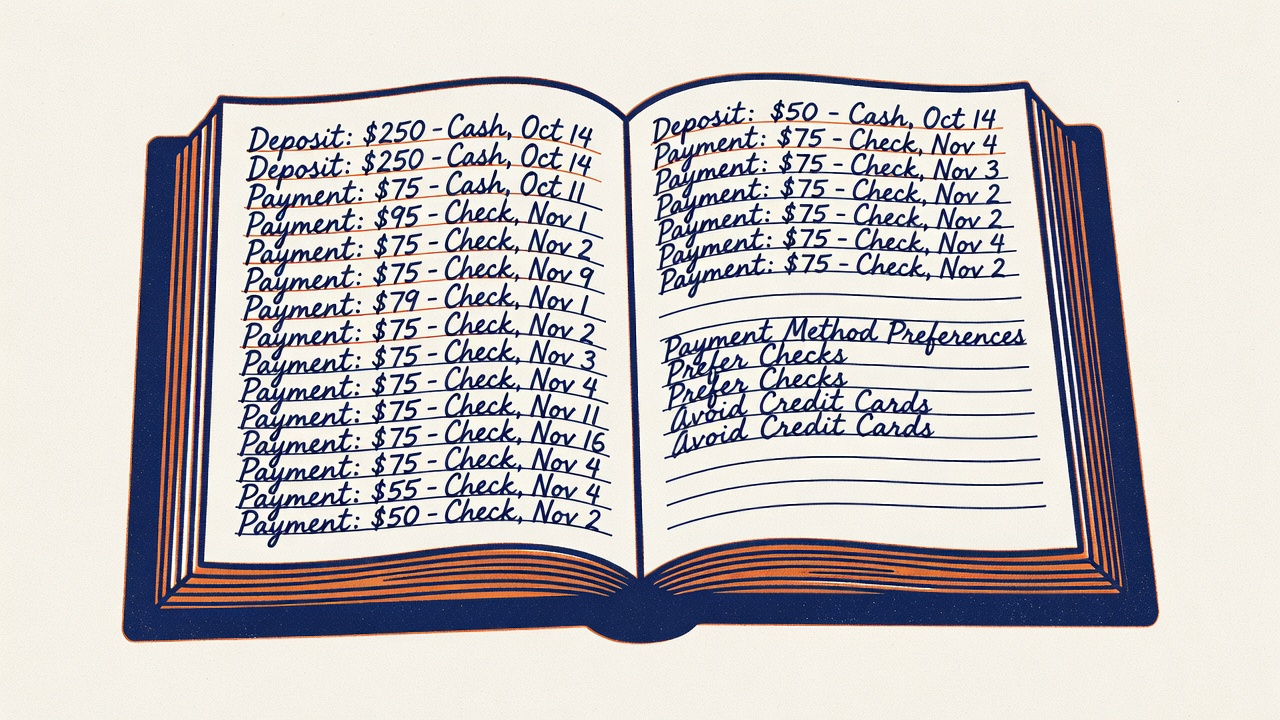 Deposit: $250 - Cash, Oct 14
Deposit: $250 - Cash, Oct 14
Payment: $75 - Cash, Oct 11
Payment: $95 - Check, Nov 1
Payment: $75 - Check, Nov 2
Payment: $75 - Check, Nov 9
Payment: $79 - Check, Nov 1
Payment: $75 - Check, Nov 2
Payment: $75 - Check, Nov 3
Payment: $75 - Check, Nov 4
Payment: $75 - Check, Nov 11
Payment: $75 - Check, Nov 16
Payment: $75 - Check, Nov 4
Payment: $55 - Check, Nov 4
Payment: $50 - Check, Nov 2
Deposit: $50 - Cash, Oct 14
Payment: $75 - Check, Nov 4
Payment: $75 - Check, Nov 3
Payment: $75 - Check, Nov 2
Payment: $75 - Check, Nov 2
Payment: $75 - Check, Nov 4
Payment: $75 - Check, Nov 2
Payment Method Preferences
Prefer Checks
Prefer Checks
Avoid Credit Cards
Avoid Credit Cards